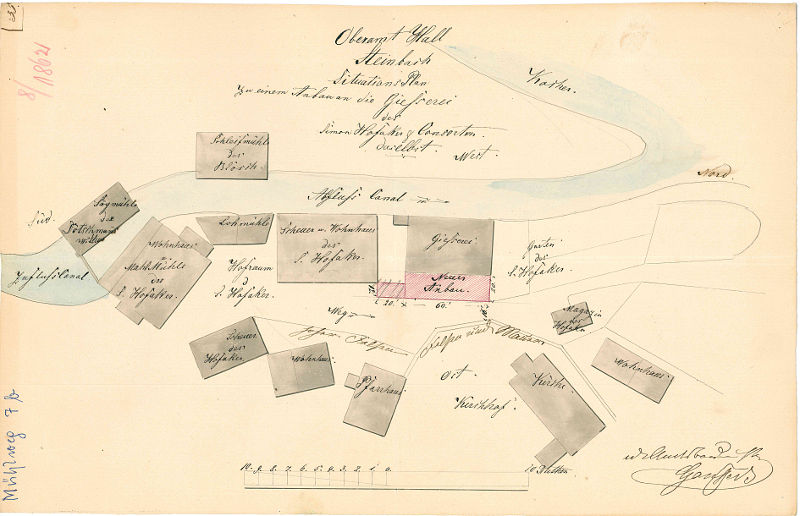 8/1862
Oberamt Hall
Steinbach
Situations Plan
Zu einem Anbau an die Giesserei
des
Simon Hofaker & Consorten
daselbst.
West.
Kocher.
Nord
Schleifmühle
des
Abfluss Canal
Sägmühle
der
Süd.
Zufluss Canal
Wohnhaus
Mahlmühle
des
S. Hofaker.
Lohmühle
Hofraum
S. Hofaker.
Scheuer u. Wohnhaus
des
S. Hofaker.
Giesserei.
Neuer
Anbau.
20. x 60.
Garten
des
S. Hofaker.
Magazin
des
Hofaker
Weg
Felsen
Felsen und Mauer
Scheuer
des
Hofaker
Wohnhaus
Pfarrhaus
Ort
Kirchhof.
Kirche
Wohnhaus
10. 9. 8. 7. 6. 5. 4. 3. 2. 1. 0.
10 Ruthen
Mühlweg 7b